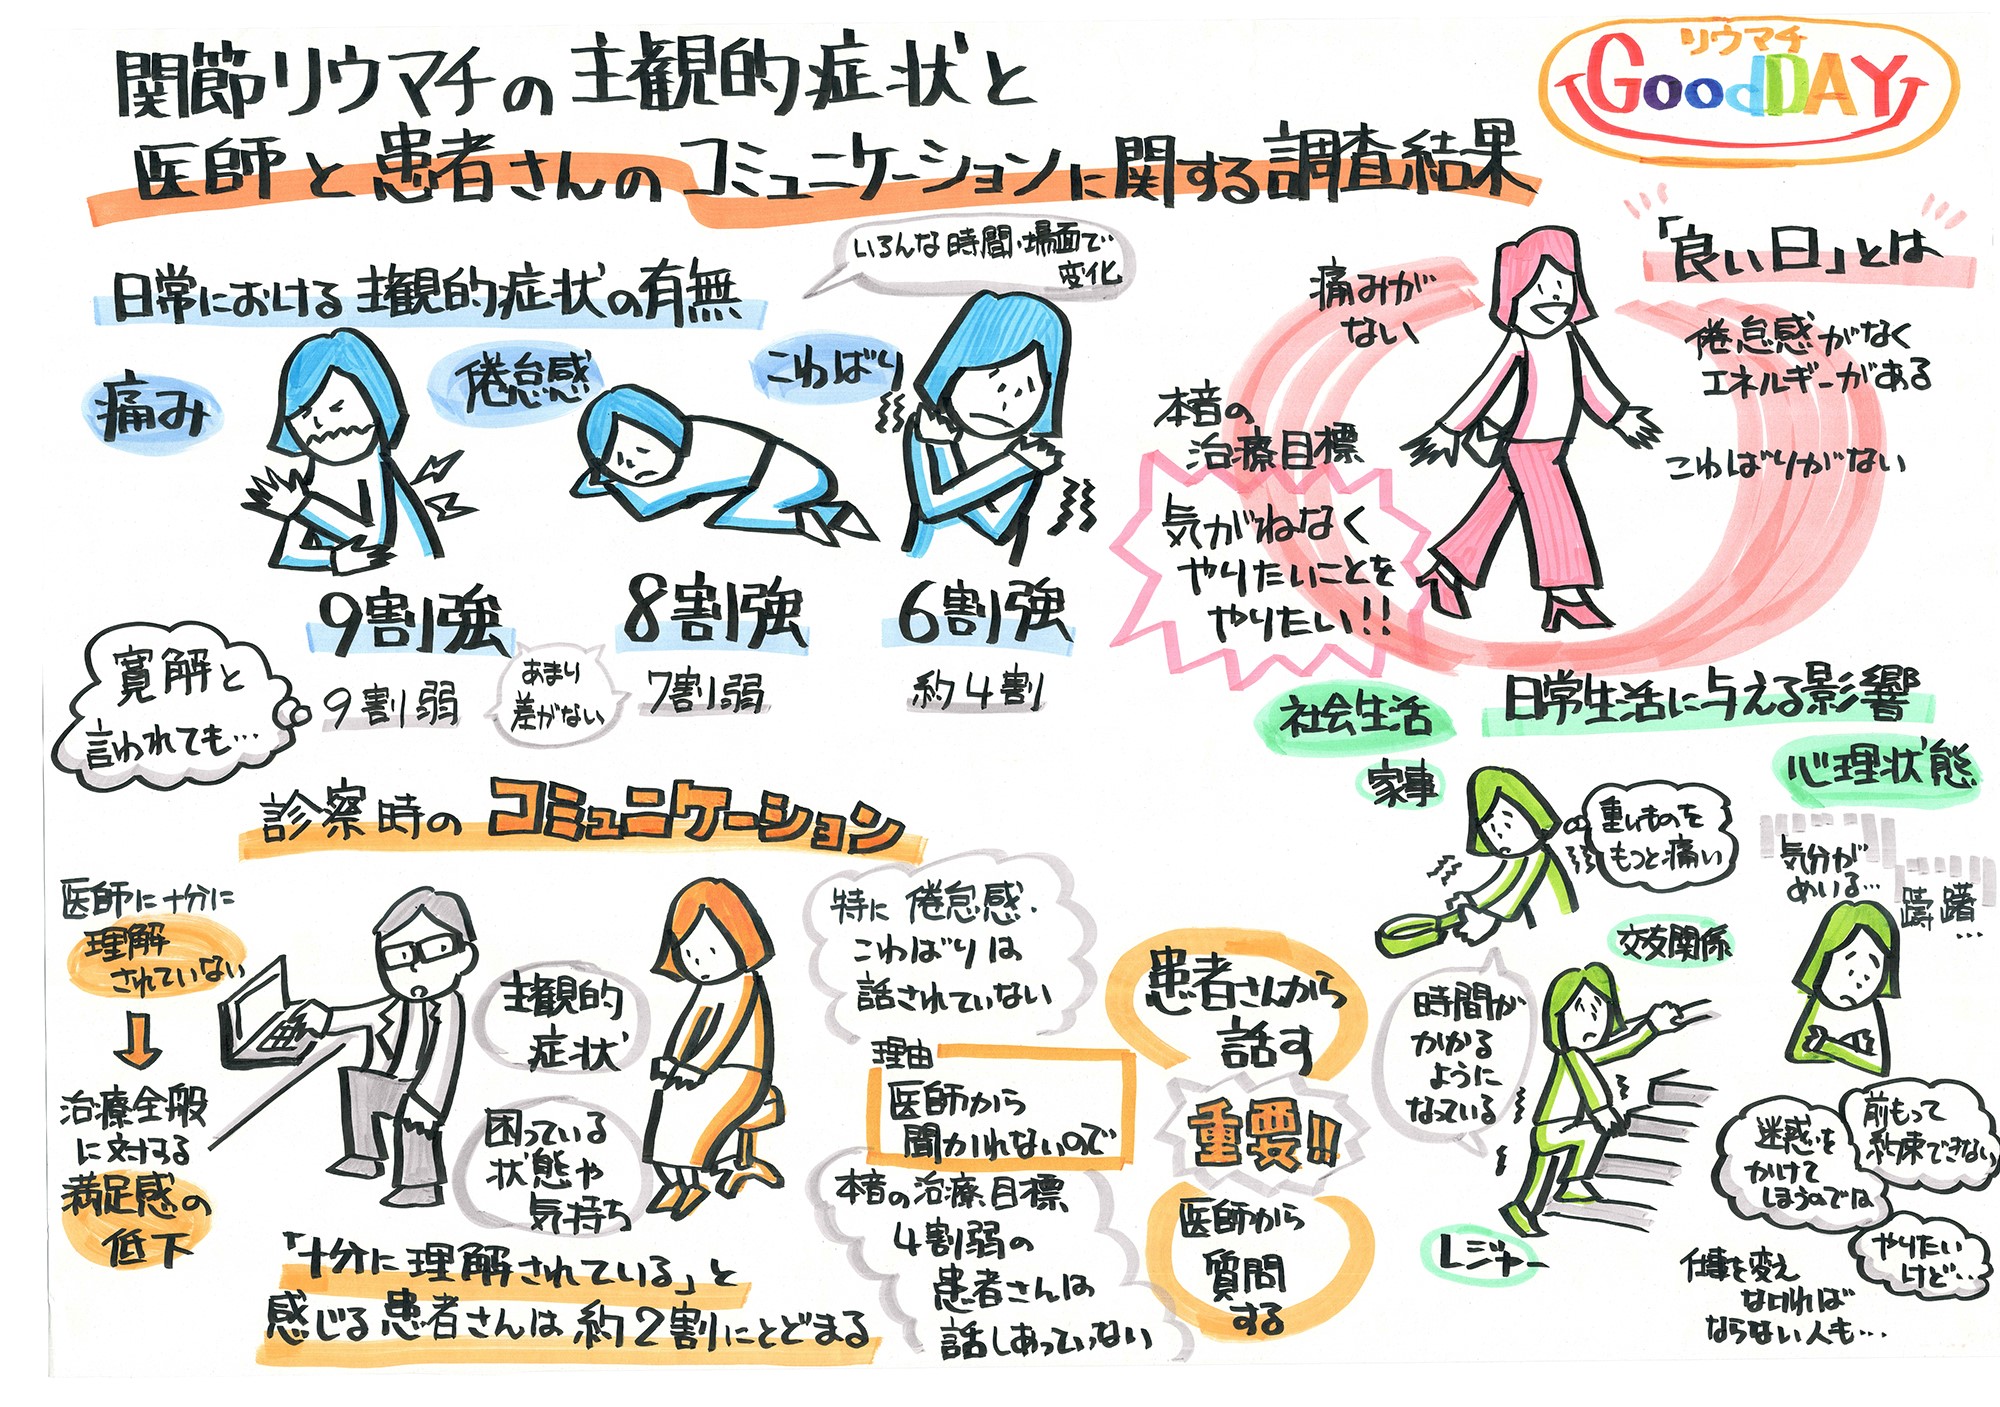 関節リウマチの主観的症状と
医師と患者さんのコミュニケーションに関する調査結果
リウマチ
GoodDAY
日常における主観的症状の有無
いろんな時間・場面で
変化
痛み
倦怠感
こわばり
9割強
8割強
6割強
寛解と
言われても…
9割弱
あまり
差がない
7割弱
約4割
「良い日」とは
痛みが
ない
倦怠感がなく
エネルギーがある
こわばりがない
本音の
治療目標
気がねなく
やりたいことを
やりたい!!
診察時のコミュニケーション
医師に十分に
理解
されていない
治療全般
に対する
満足感の
低下
主観的
症状
困っている
状態や
気持ち
「十分に理解されている」と
感じる患者さんは約2割にとどまる
特に倦怠感・
こわばりは
話されていない
理由
医師から
聞かれないので
本音の治療目標
4割弱の
患者さんは
話しあっていない
患者さんから
話す
重要!!
医師から
質問
する
日常生活に与える影響
社会生活
家事
重いものを
もつと痛い
交友関係
時間が
かかる
ように
なっている
レジャー
心理状態
気分が
めいる…
躊躇…
前もって
約束できない
迷惑を
かけて
しまうのでは
やりたい
けど…
仕事を変え
なければ
ならない人も…